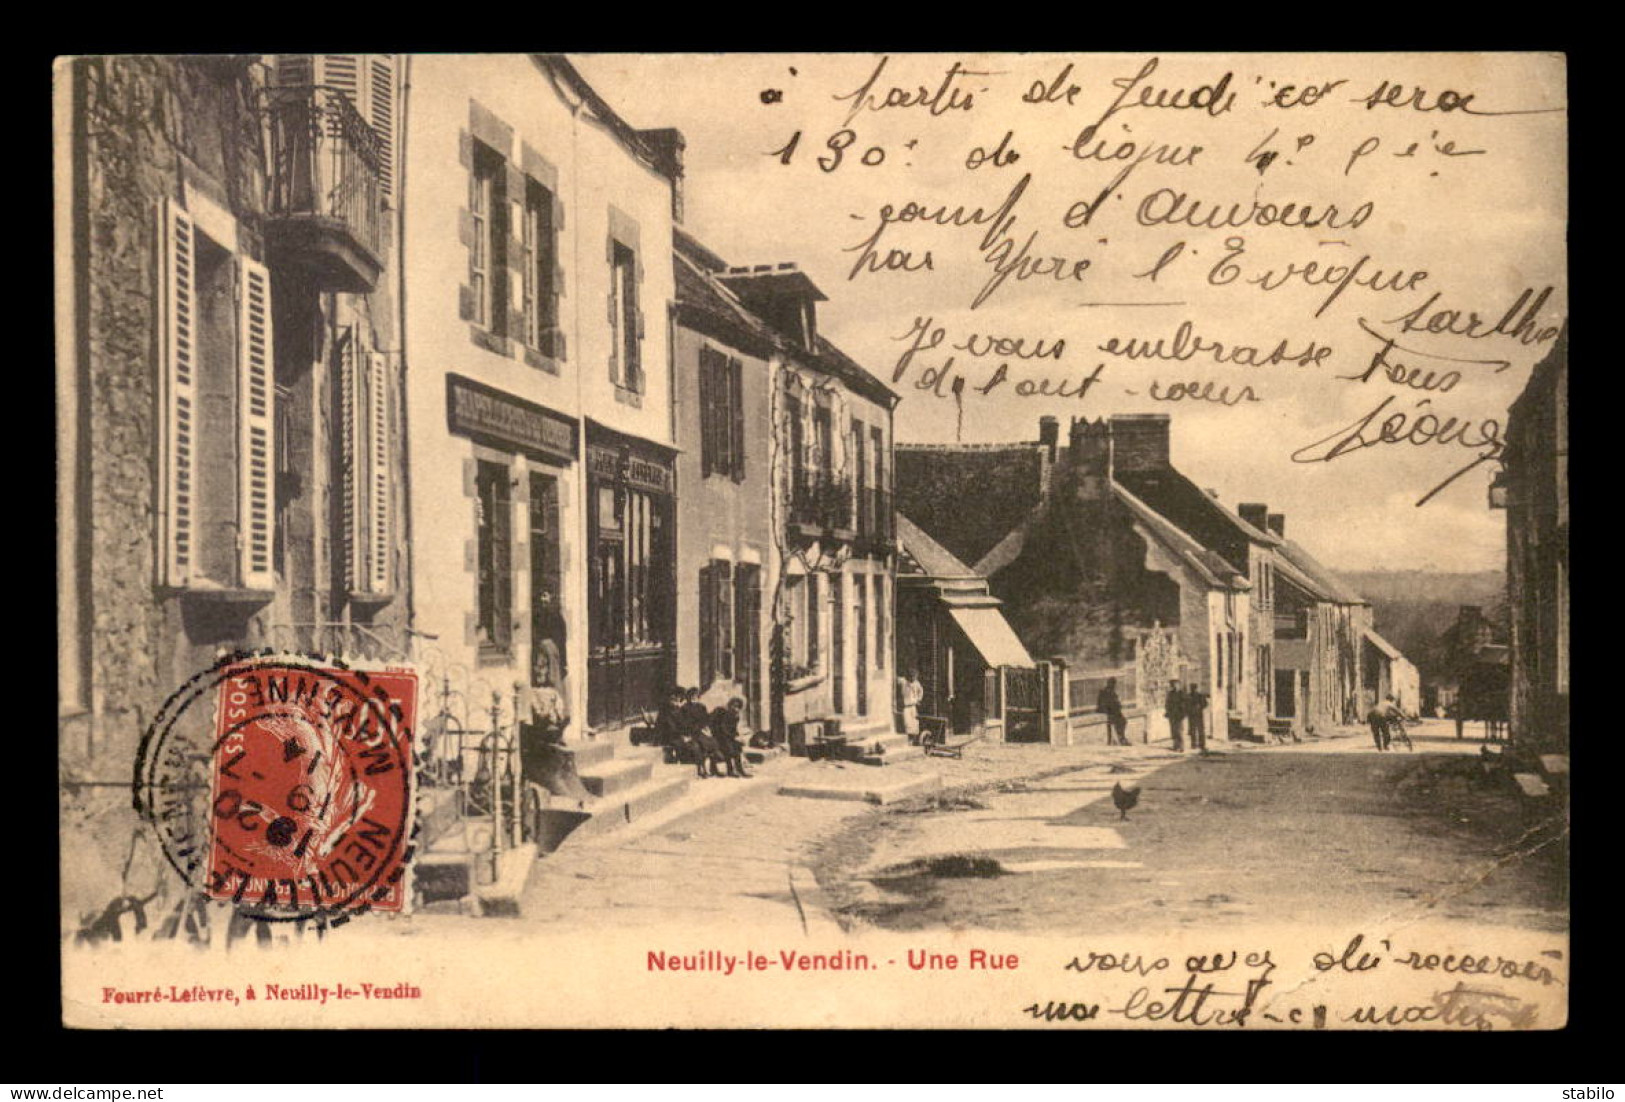 à partir de Jeudi ce sera
130e de ligne 4e Cie
camp d'Auvours
par Yvré l'Evêque
Sarthe
Je vous embrasse tous
de tout cœur
Léone
POSTES
NEUILLY-LE-VENDIN
MAYENNE
18
20 -V.
19
14
Neuilly-le-Vendin. - Une Rue
Fourré-Lefèvre, à Neuilly-le-Vendin
vous avez dû recevoir
ma lettre ce matin
stabilo